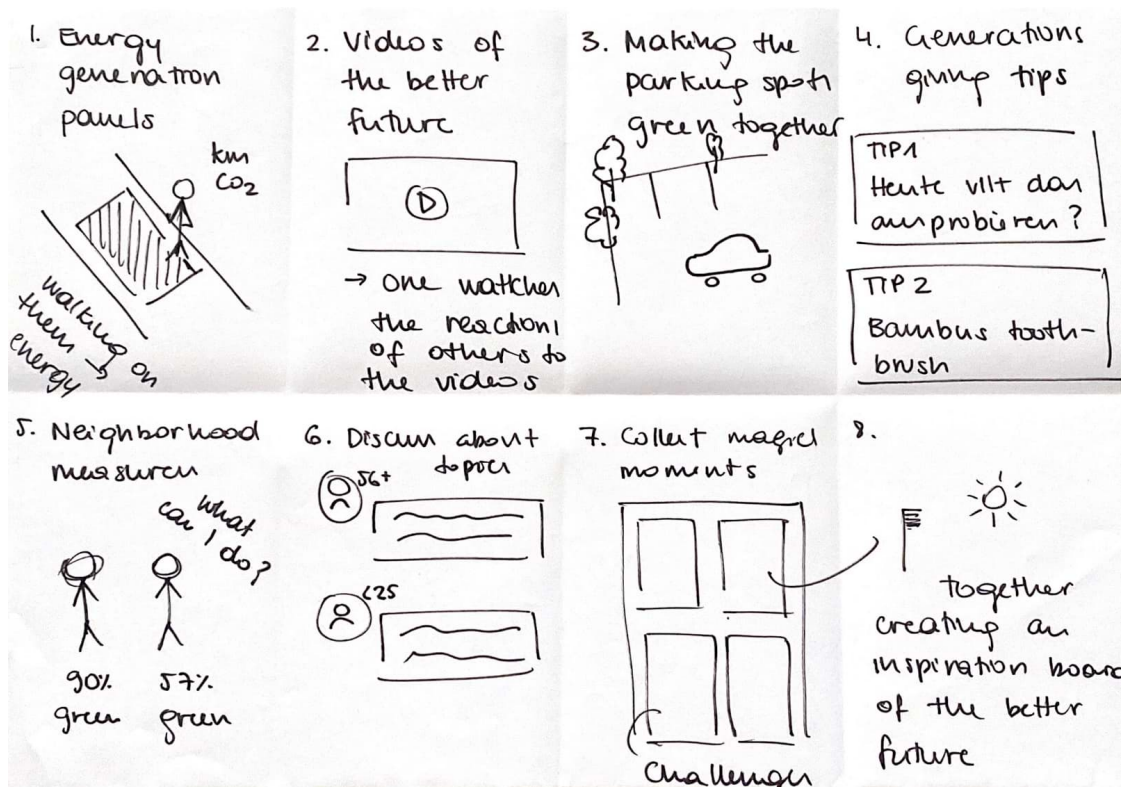 1. Energy
generation
panels
km
CO2
walking on
them →
energy
2. Videos of
the better
future
→ one watches
the reactions
of others to
the videos
3. Making the
parking spots
green together
4. Generations
giving tips
TIP1
Heute
?
TIP 2
Bambus tooth-
brush
5. Neighborhood
measures
what
can I do?
90%
green
57%
green
6. Discuss about
topics
56+
<25
7. Collect magic
moments
Challenges
8.
together
creating an
inspiration board
of the better
future